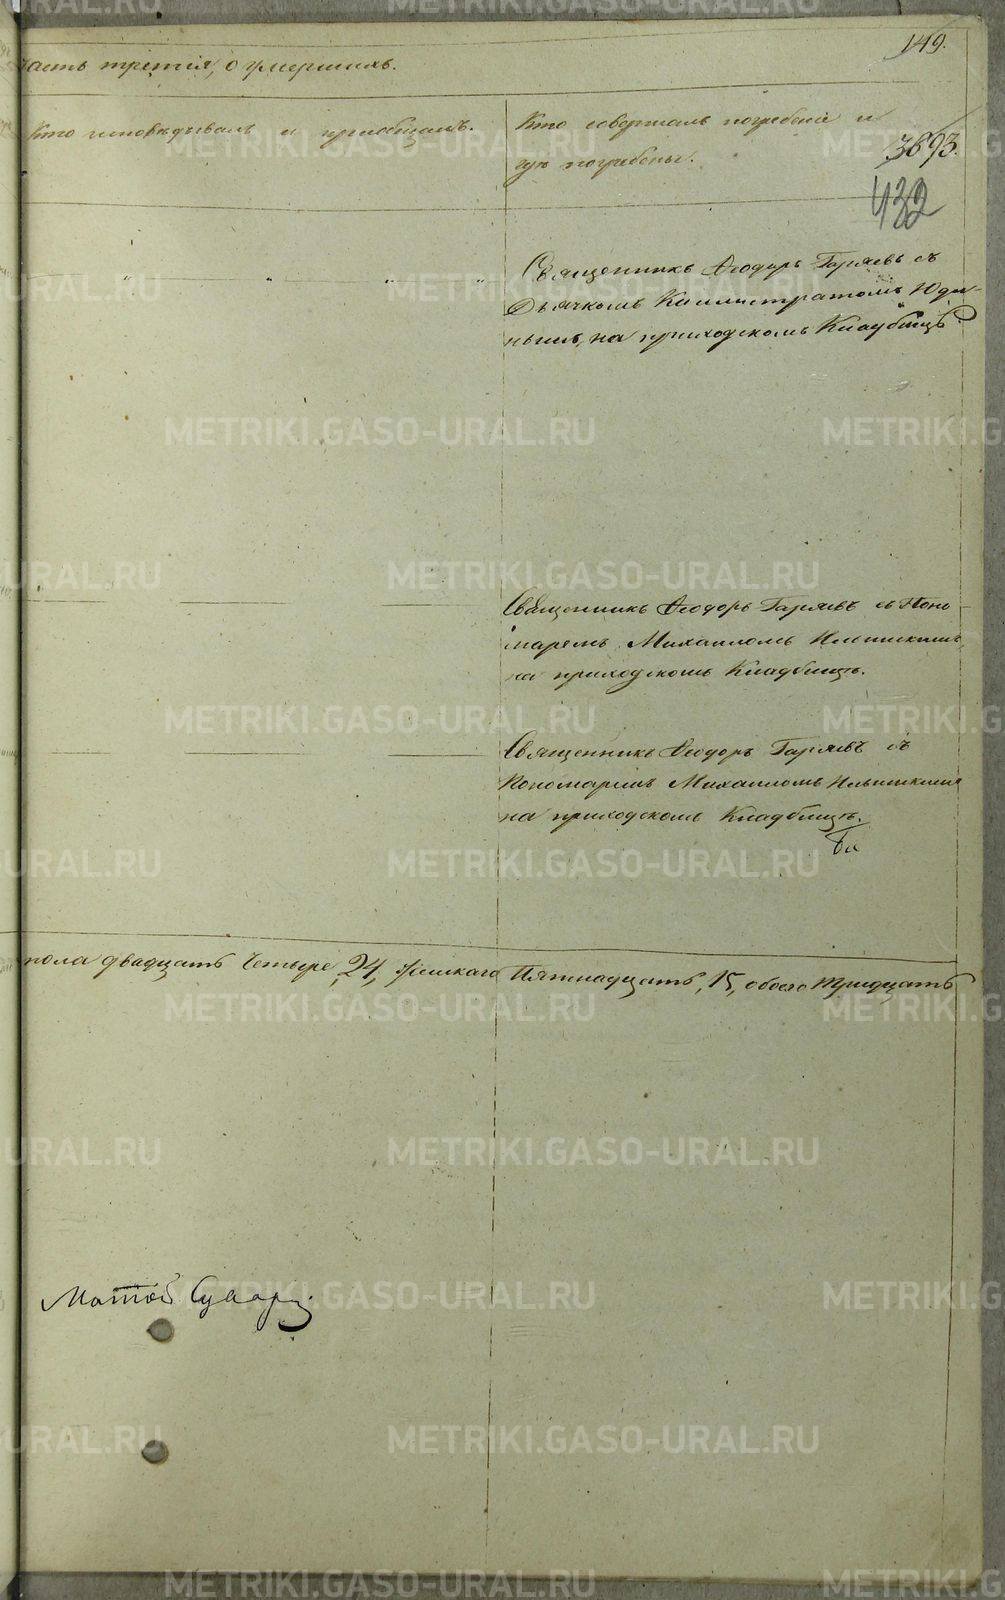 149.
Часть третія, о умершихъ.
Кто исповѣдывалъ и пріобщалъ.
Кто совершалъ погребеніе и
гдѣ погребены.
3693.
432
Священникъ Ѳеодоръ Гаряевъ съ
Дьячкомъ Каллистратомъ Юди-
нымъ, на приходскомъ Кладбищѣ.
Священникъ Ѳеодоръ Гаряевъ съ Поно
маремъ Михаиломъ
на приходскомъ Кладбищѣ.
Священникъ Ѳеодоръ Гаряевъ съ
Пономаремъ Михаиломъ
на приходскомъ Кладбищѣ.
пола двадцать четыре, 24, женскаго Пятнадцать, 15, обоего тридцать
METRIKI.GASO-URAL.RU